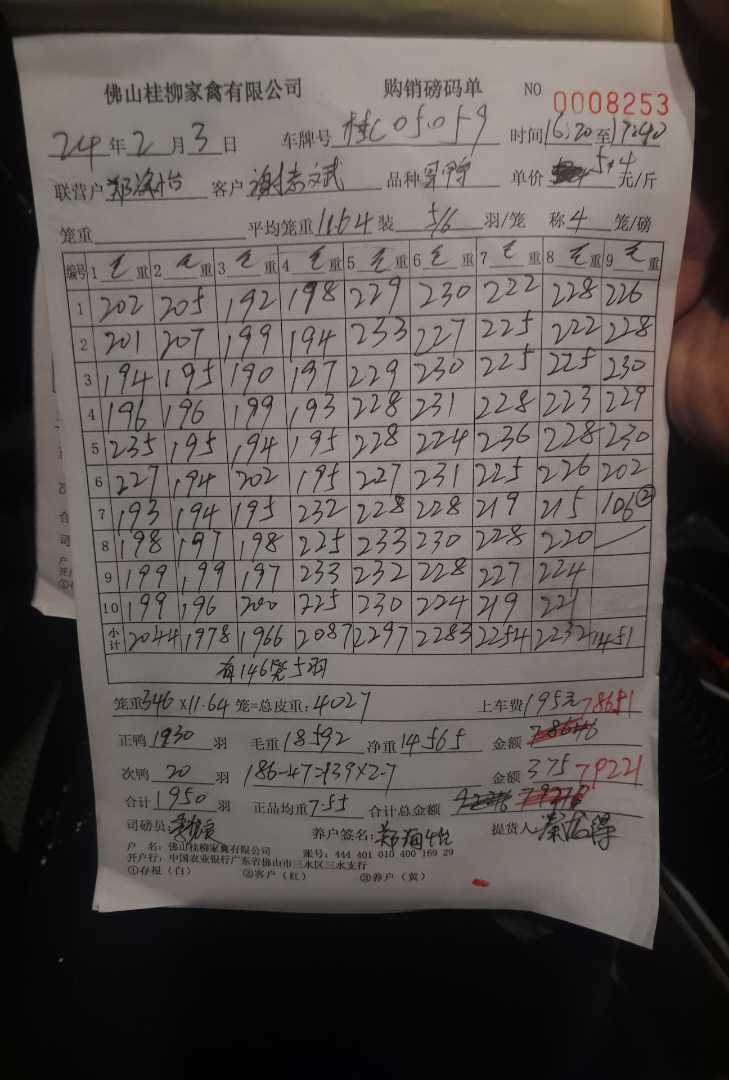 佛山桂柳家禽有限公司 购销磅码单 NO 0008253
24年2月3日 车牌号 桂C05059 时间16:20至17:40
联营户 客户 谢志文武 品种 单价 5.4元/斤
笼重 平均笼重11.64装 5/6 羽/笼 称4笼/磅
编号 1毛重 2毛重 3毛重 4毛重 5毛重 6毛重 7毛重 8毛重 9毛重
1 202 205 192 198 229 230 222 228 226
2 201 207 199 194 233 227 225 222 228
3 194 195 190 197 229 230 225 225 230
4 196 196 199 193 228 231 228 223 229
5 235 195 194 195 228 224 236 228 230
6 227 194 202 195 227 231 225 226 202
7 193 194 195 232 228 228 219 215 106②
8 198 197 198 225 233 230 228 220
9 199 199 197 233 232 228 227 224
10 199 196 200 225 230 224 219 221
小计 2044 1978 1966 2087 2297 2283 2254 2232 1451
有146笼5羽
笼重346×11.64笼=总皮重:4027 上车费195元 78651
正鸭1930羽 毛重18592 净重14565 金额
次鸭20羽 186-47=139×2.7 金额375 79221
合计1950羽 正品均重7.55 合计总金额
司磅员: 养户签名: 提货人:
户 名: 佛山桂柳家禽有限公司 账号: 444 401 010 400 169 29
开户行: 中国农业银行广东省佛山市三水区三水支行
①存根(白) ②客户(红) ③养户(黄)